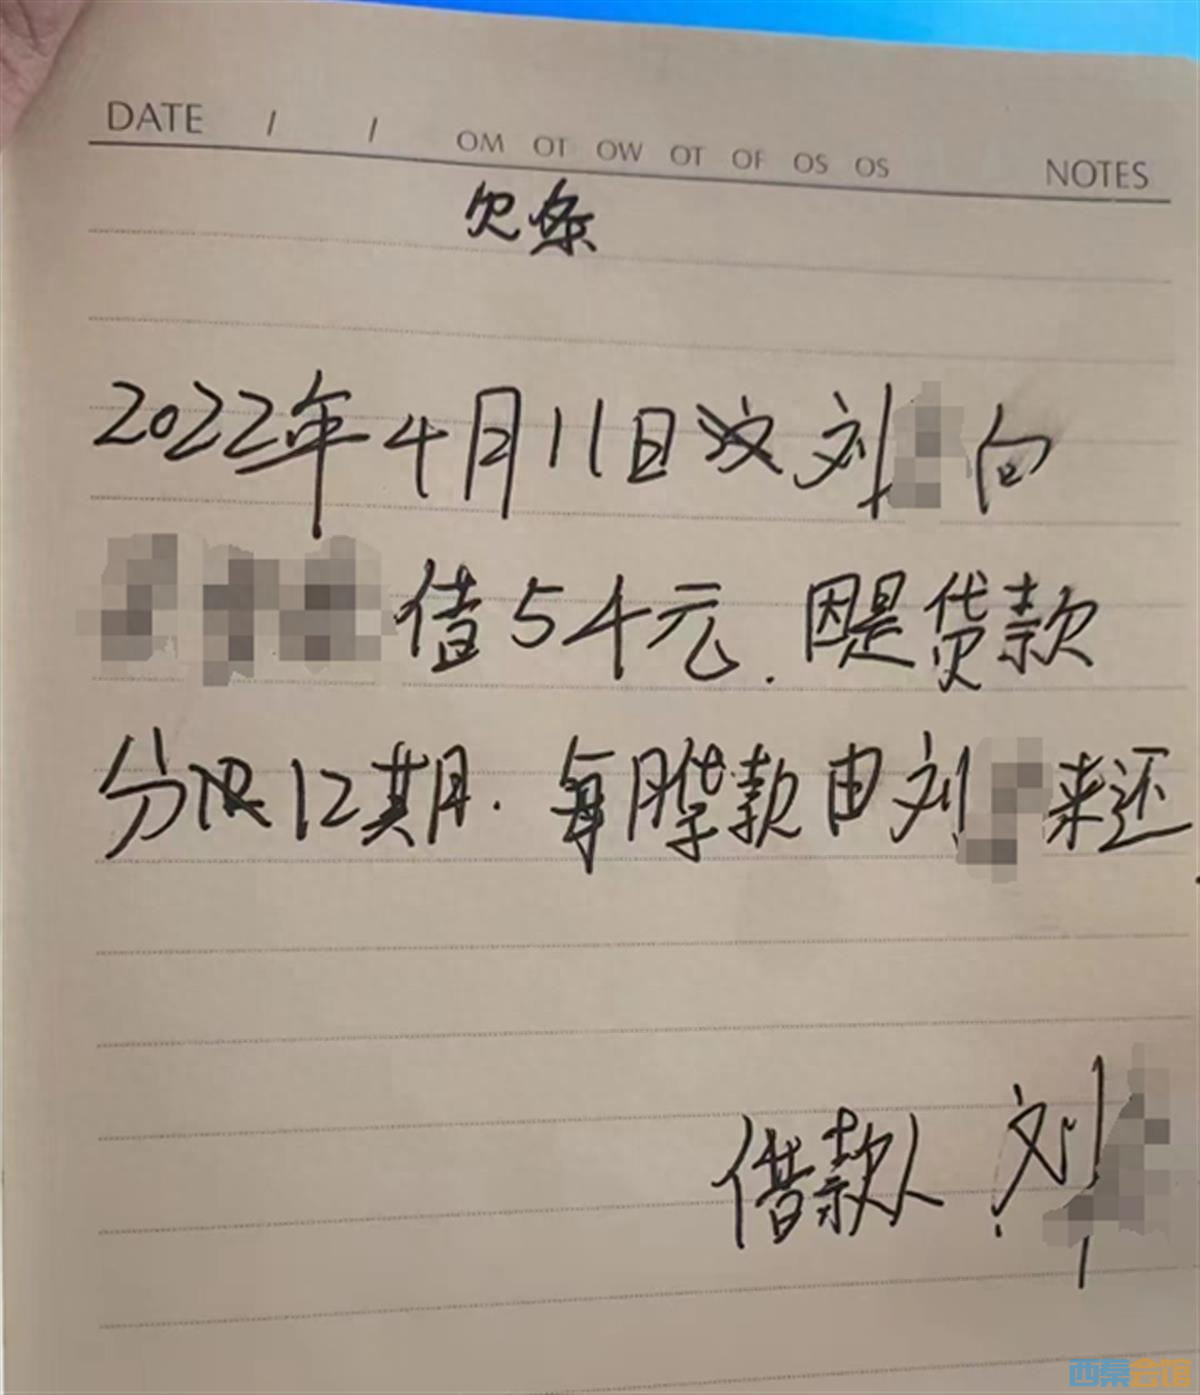 DATE / / OM OT OW OT OF OS OS NOTES
欠条
2022年4月11日 刘 向
借5千元.因是货款
分 12期.每月 款由刘 来还.
借款人:刘
西秦会馆